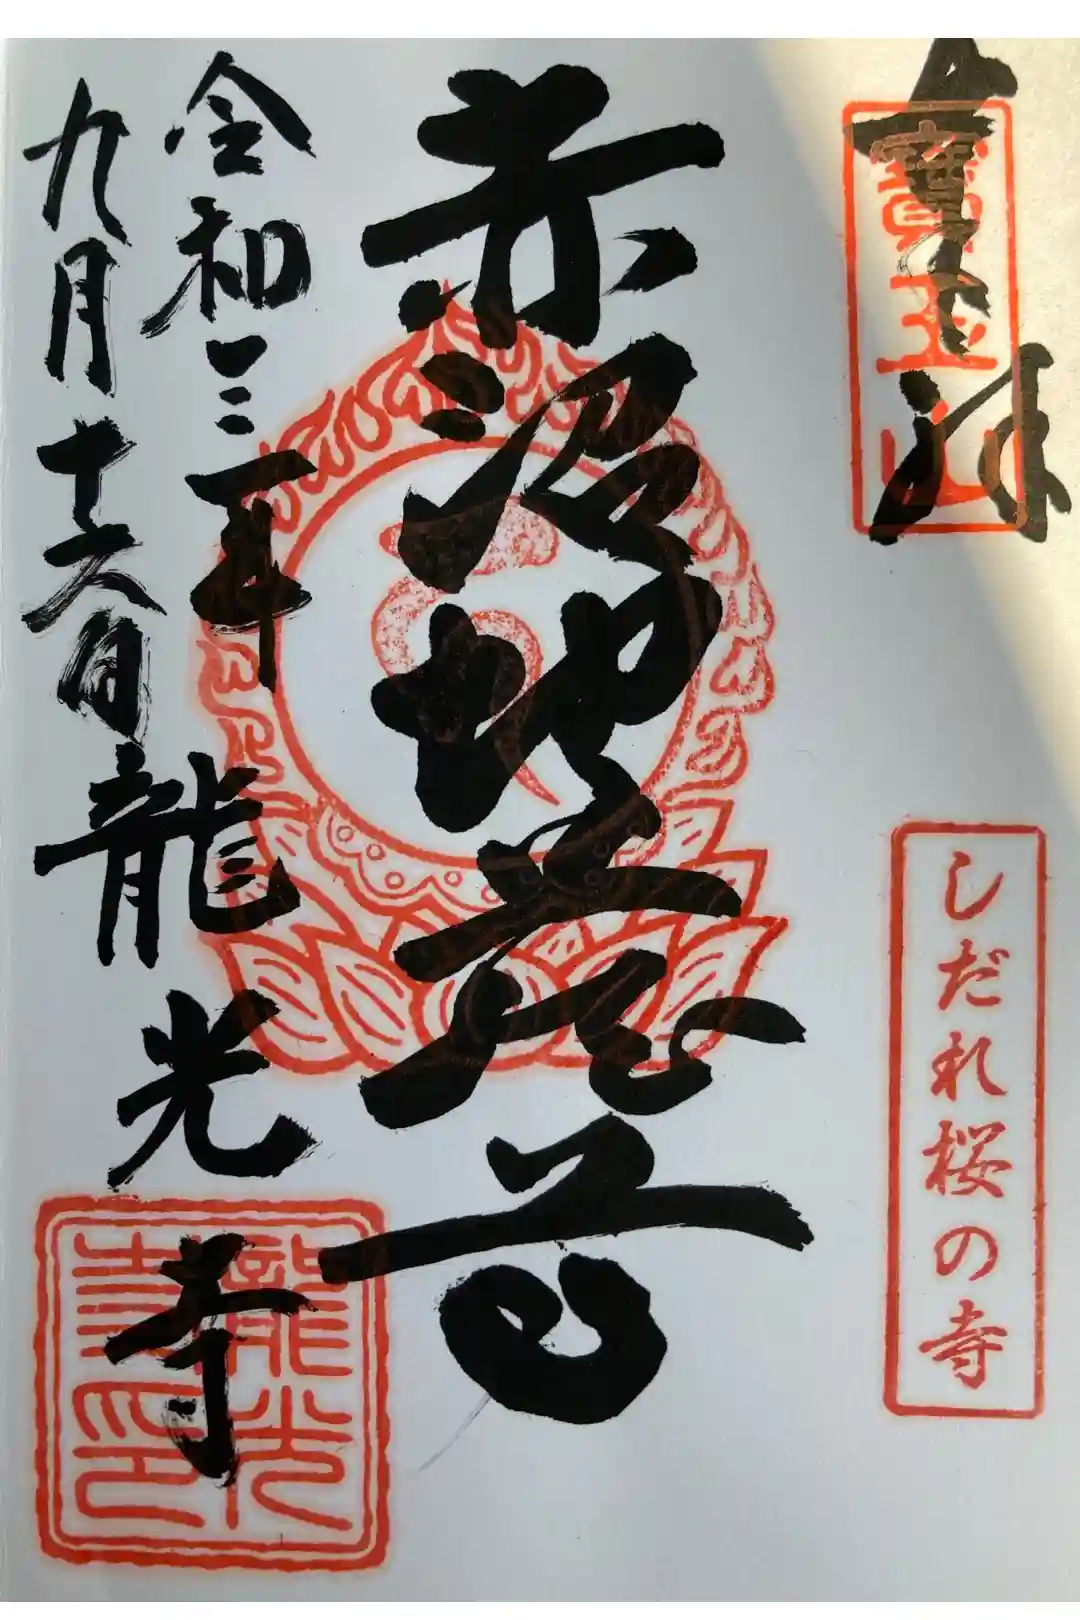 奉拝
寶玉山
しだれ桜の寺
赤沼地蔵尊
令和三年
九月十六日
龍光寺
龍光寺印